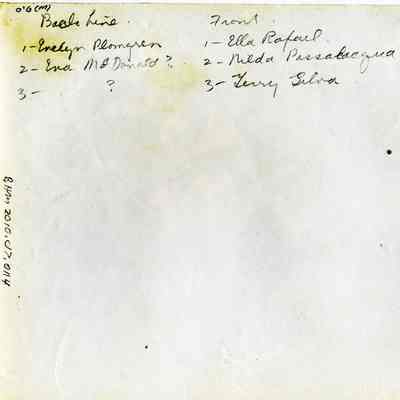 0'6(m)
Back Line.
1- Evelyn Plomgren
2- Eva McDonald?
3- ?
Front.
1- Ella Rafael
2- Nilda Passalacqua
3- Terry Silva
BHM 2010.017.0114